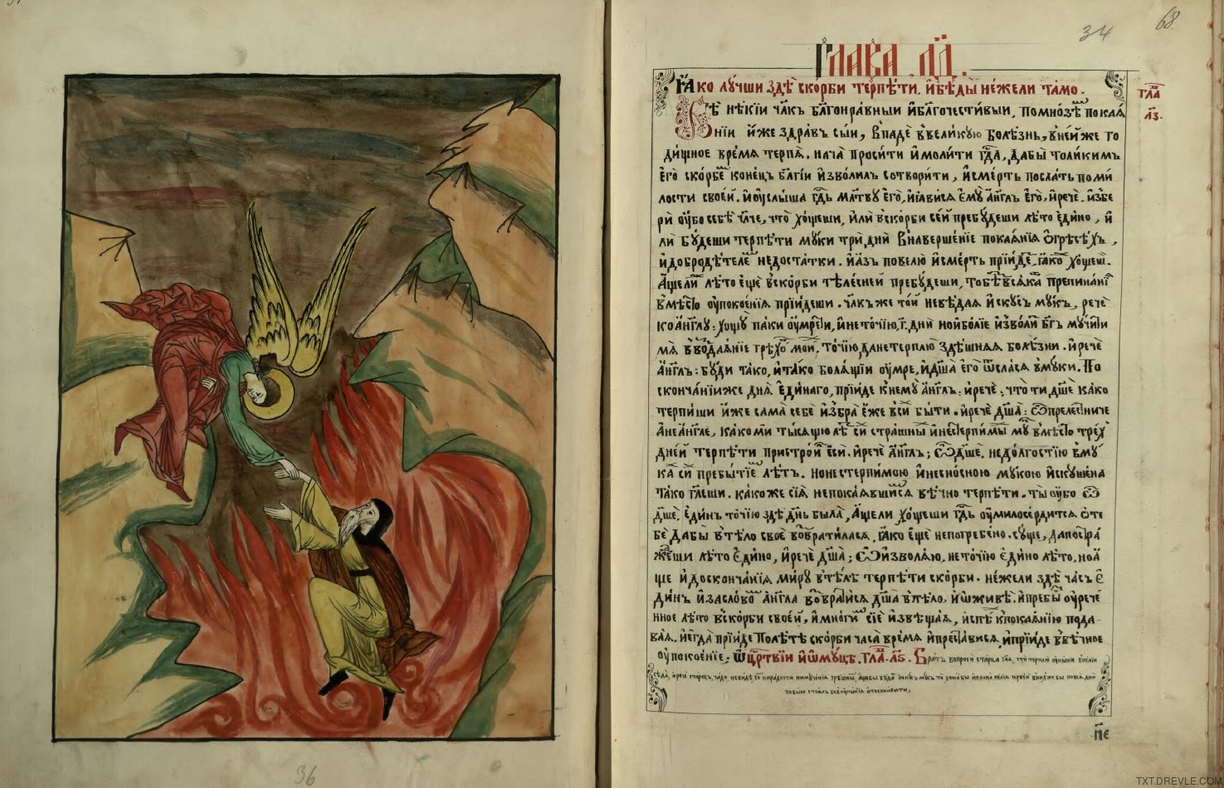 34
68
Глава л҃д.
Ꙗко лу́чши здѣ̀ ско́рби терпѣ́ти. и҆бѣ́ды не́жели та́мо.
гла
Бѣ̀ нѣ́кїи чл҃къ благонра́вныи и҆бл҃гочести́выи, помно́зѣ покаѧ
нїи и҆́же здра́въ сы́и, впадѐ ввели́кую болѣ́знь, внѣ́йже го
ди́щное вре́мѧ терпѧ̀. нача̀ проси́ти и҆моли́ти гд҇а, дабы̀ толи́кимъ
є҆го̀ ско́рбе коне́цъ бл҃гі́и и҆зво́лилъ сотвори́ти, и҆сме́рть посла́ть поми
лости свое́й. и҆ѹ҆слы́ша гд҇ь мл҃тву є҆го̀, и҆ꙗ҆ви́сѧ є҆му̀ а҆́нглъ є҆го̀, и҆речѐ. и҆збе
рѝ ѹ҆́бо себѣ̀ чл҃че, что̀ хо́щеши, и҆́ли вско́рби се́й пребу́деши лѣ́то є҆ди́но, и҆
лѝ бу́деши терпѣ́ти му́ки трѝ днѝ внаверше́нїе покаѧ́нїѧ ѿгрѣсѣ́хъ,
и҆доброд́ѣтеле недоста́тки. и҆а҆́зъ повелю̀ и҆сме́рть прїи́де, ꙗ҆́ко хо́щеши.
А҆́щели лѣ́то є҆щѐ вско́рби тѣле́сней пребу́деши, тобѣ́зъ всѧ́ка препина́нї
вмѣ́сто ѹ҆покое́нїѧ прїи́деши. чл҃къ же то́й невѣ́даѧ и҆ску́съ му́къ, речѐ
ко а҆́нглу: хощу̀ па́ки ѹ҆мре́ти, и҆нето́чїю, г҃, днѝ но и҆бо́лїе и҆зво́ли бг҃ъ му́чити
мѧ̀ вво́здаѧ́нїе грѣ́хо мои́, то́чїю да нетерплю̀ здѣ́шнаѧ болѣ́зни. и҆речѐ
а҆́нглъ: бу́ди та́ко, и҆та́ко болѧ́щїи ѹ҆́мре, и҆дш҃а є҆го̀ всели́сѧ вму́ки. По
сконча́нїи же днѐ є҆ди́наго, прїи́де кнему̀ а҆́нглъ. и҆речѐ: что̀ ти дш҃е ка́ко
терпи́ши и҆́же сама̀ себѐ и҆збра̀ є҆́же вси́ бы́ти. и҆речѐ дш҃а: ѽ преле́стниче
а҆не а҆́нгле, ка́ко ми ты́сѧщю лѣ́ си́ стра́шны и҆нестерпи́мы му́ вмѣ́сто трех
дне́й терпѣ́ти пристро́й є҆сѝ. и҆речѐ а҆́нглъ: ѽ дш҃е, недолго́стїю вму
ка си́ пребы́тїе лѣ́тъ. но нестерпи́мою и҆несно́сною му́кою и҆скуше́на
та́ко гл҃еши. како́же сїѧ̀ непокаѧ́вшиисѧ вѣ́чно терпѣ́ти. ты̀ ѹ҆́бо ѽ
дш҃е, є҆ди́нъ то́чїю здѣ̀ дн҃ь была̀, А҆́щели хо́щеши гд҇ь ѹ҆милосе́рдитсѧ ѡ҆те
бѐ дабы̀ вте́ло своѐ возврати́ласѧ, ꙗ҆́ко є҆щѐ непогребено̀. су́ще, да постра
жеши лѣ́то є҆ди́но, и҆речѐ дш҃а: ѽ и҆зволѧ́ю, нето́чїю є҆ди́но лѣ́то, но а҆́
ще и҆доскончанїѧ ми́ру вте́лѣ терпѣ́ти ско́рби. не́жели здѣ̀ ча́съ є҆
ди́нъ и҆засло́во а҆́нгла возврати́сѧ дш҃а вте́ло. и҆ѡ҆живѐ: и҆пребы̀ ѹ҆рече
нное лѣ́то вско́рби свое́й, и҆мно́ги сїѐ и҆звѣща́ѧ, и҆спѣ́ кпокаѧ́нїю пода
ваѧ, и҆є҆гда̀ прїи́де Полѣ́тѣ ско́рби ча́са вре́мѧ и҆преста́висѧ, и҆прїи́де ввѣ́чное
ѹ҆покое́нїе: Ѡ҆ црⷭ҇твїи и҆ѡ҆му́цѣ. гла. л҃ѕ. Бра́тъ вопросѝ ста́рца
п҃є
36
TXT.DREVLE.COM